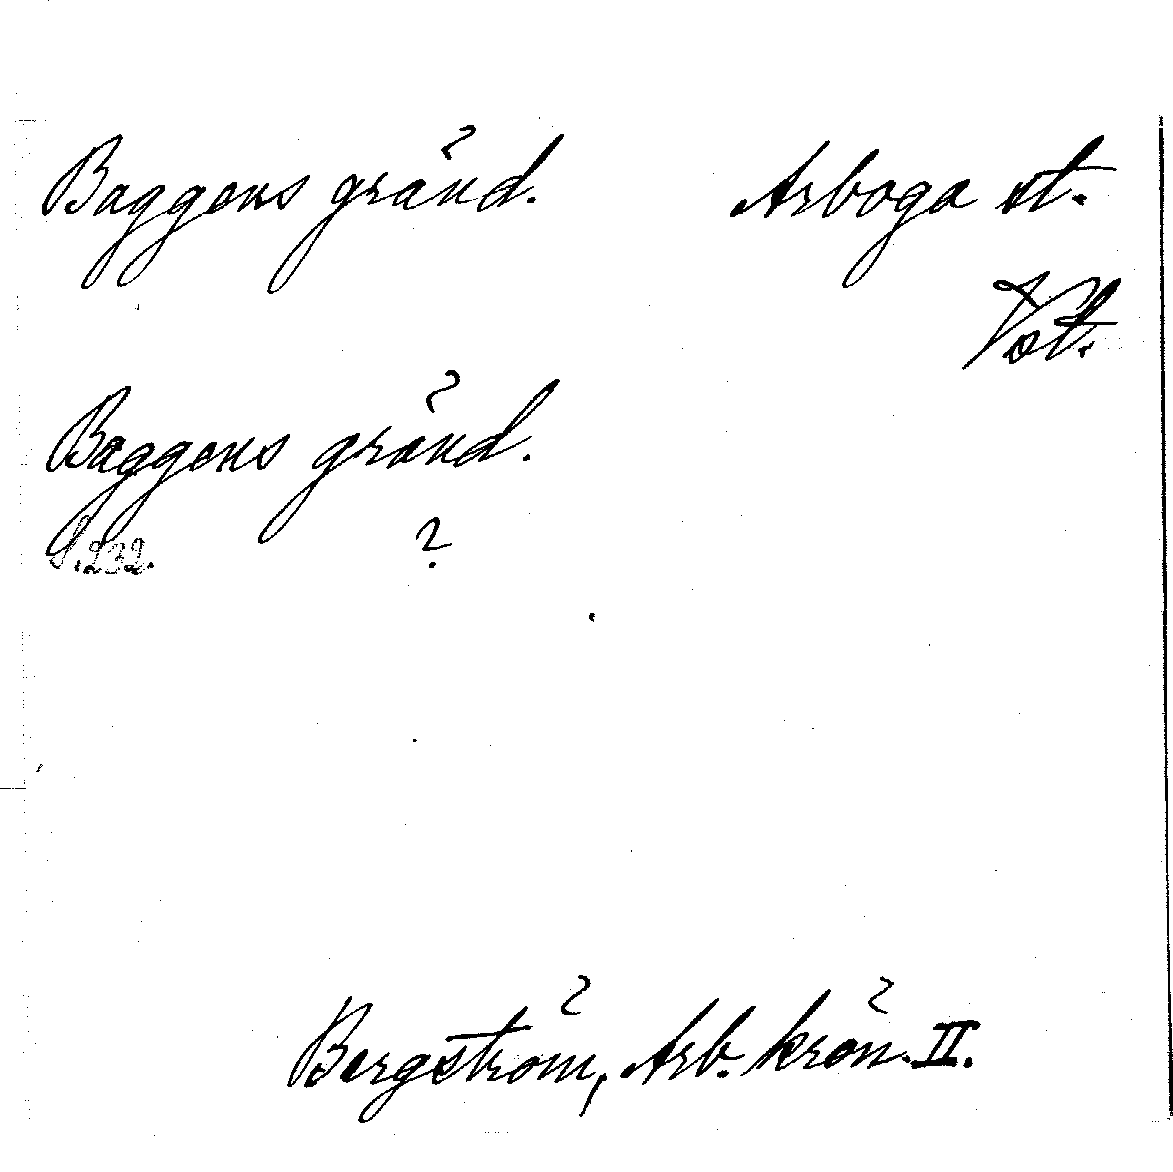 Baggens gränd. Arboga st.
Vst.
Baggens gränd.
S.232. ?
Bergström, Arb. krön. II.